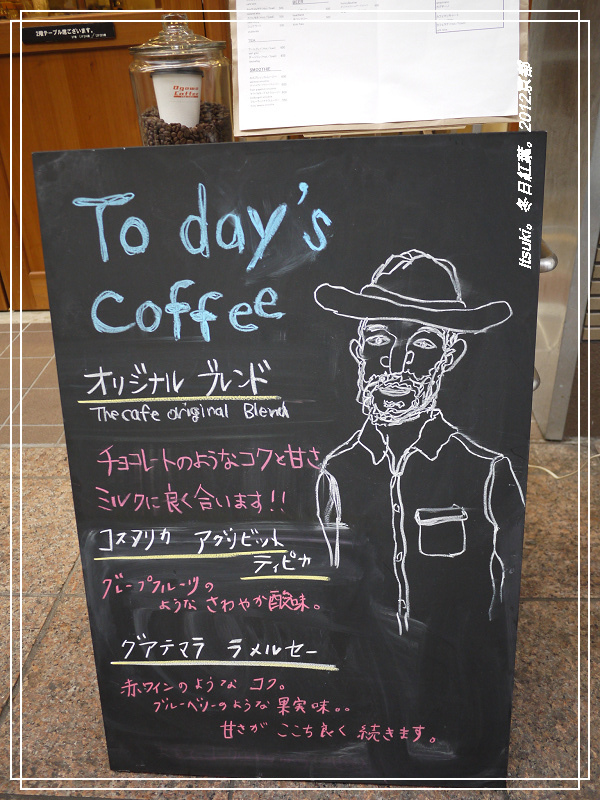 2階テーブル席ございます。
Ogawa
Coffee
BEER
SMOOTHIE
Itsuki。冬日紅葉。2012京都
To day's
Coffee
オリジナル ブレンド
The cafe original Blend
チョコレートのようなコクと甘さ
ミルクに良く合います!!
コスタリカ アグリビット
ティピカ
グレープフルーツの
ような さわやか酸味。
グアテマラ ラメルセー
赤ワインのような コク。
ブルーベリーのような果実味。。
甘さが ここち良く 続きます。